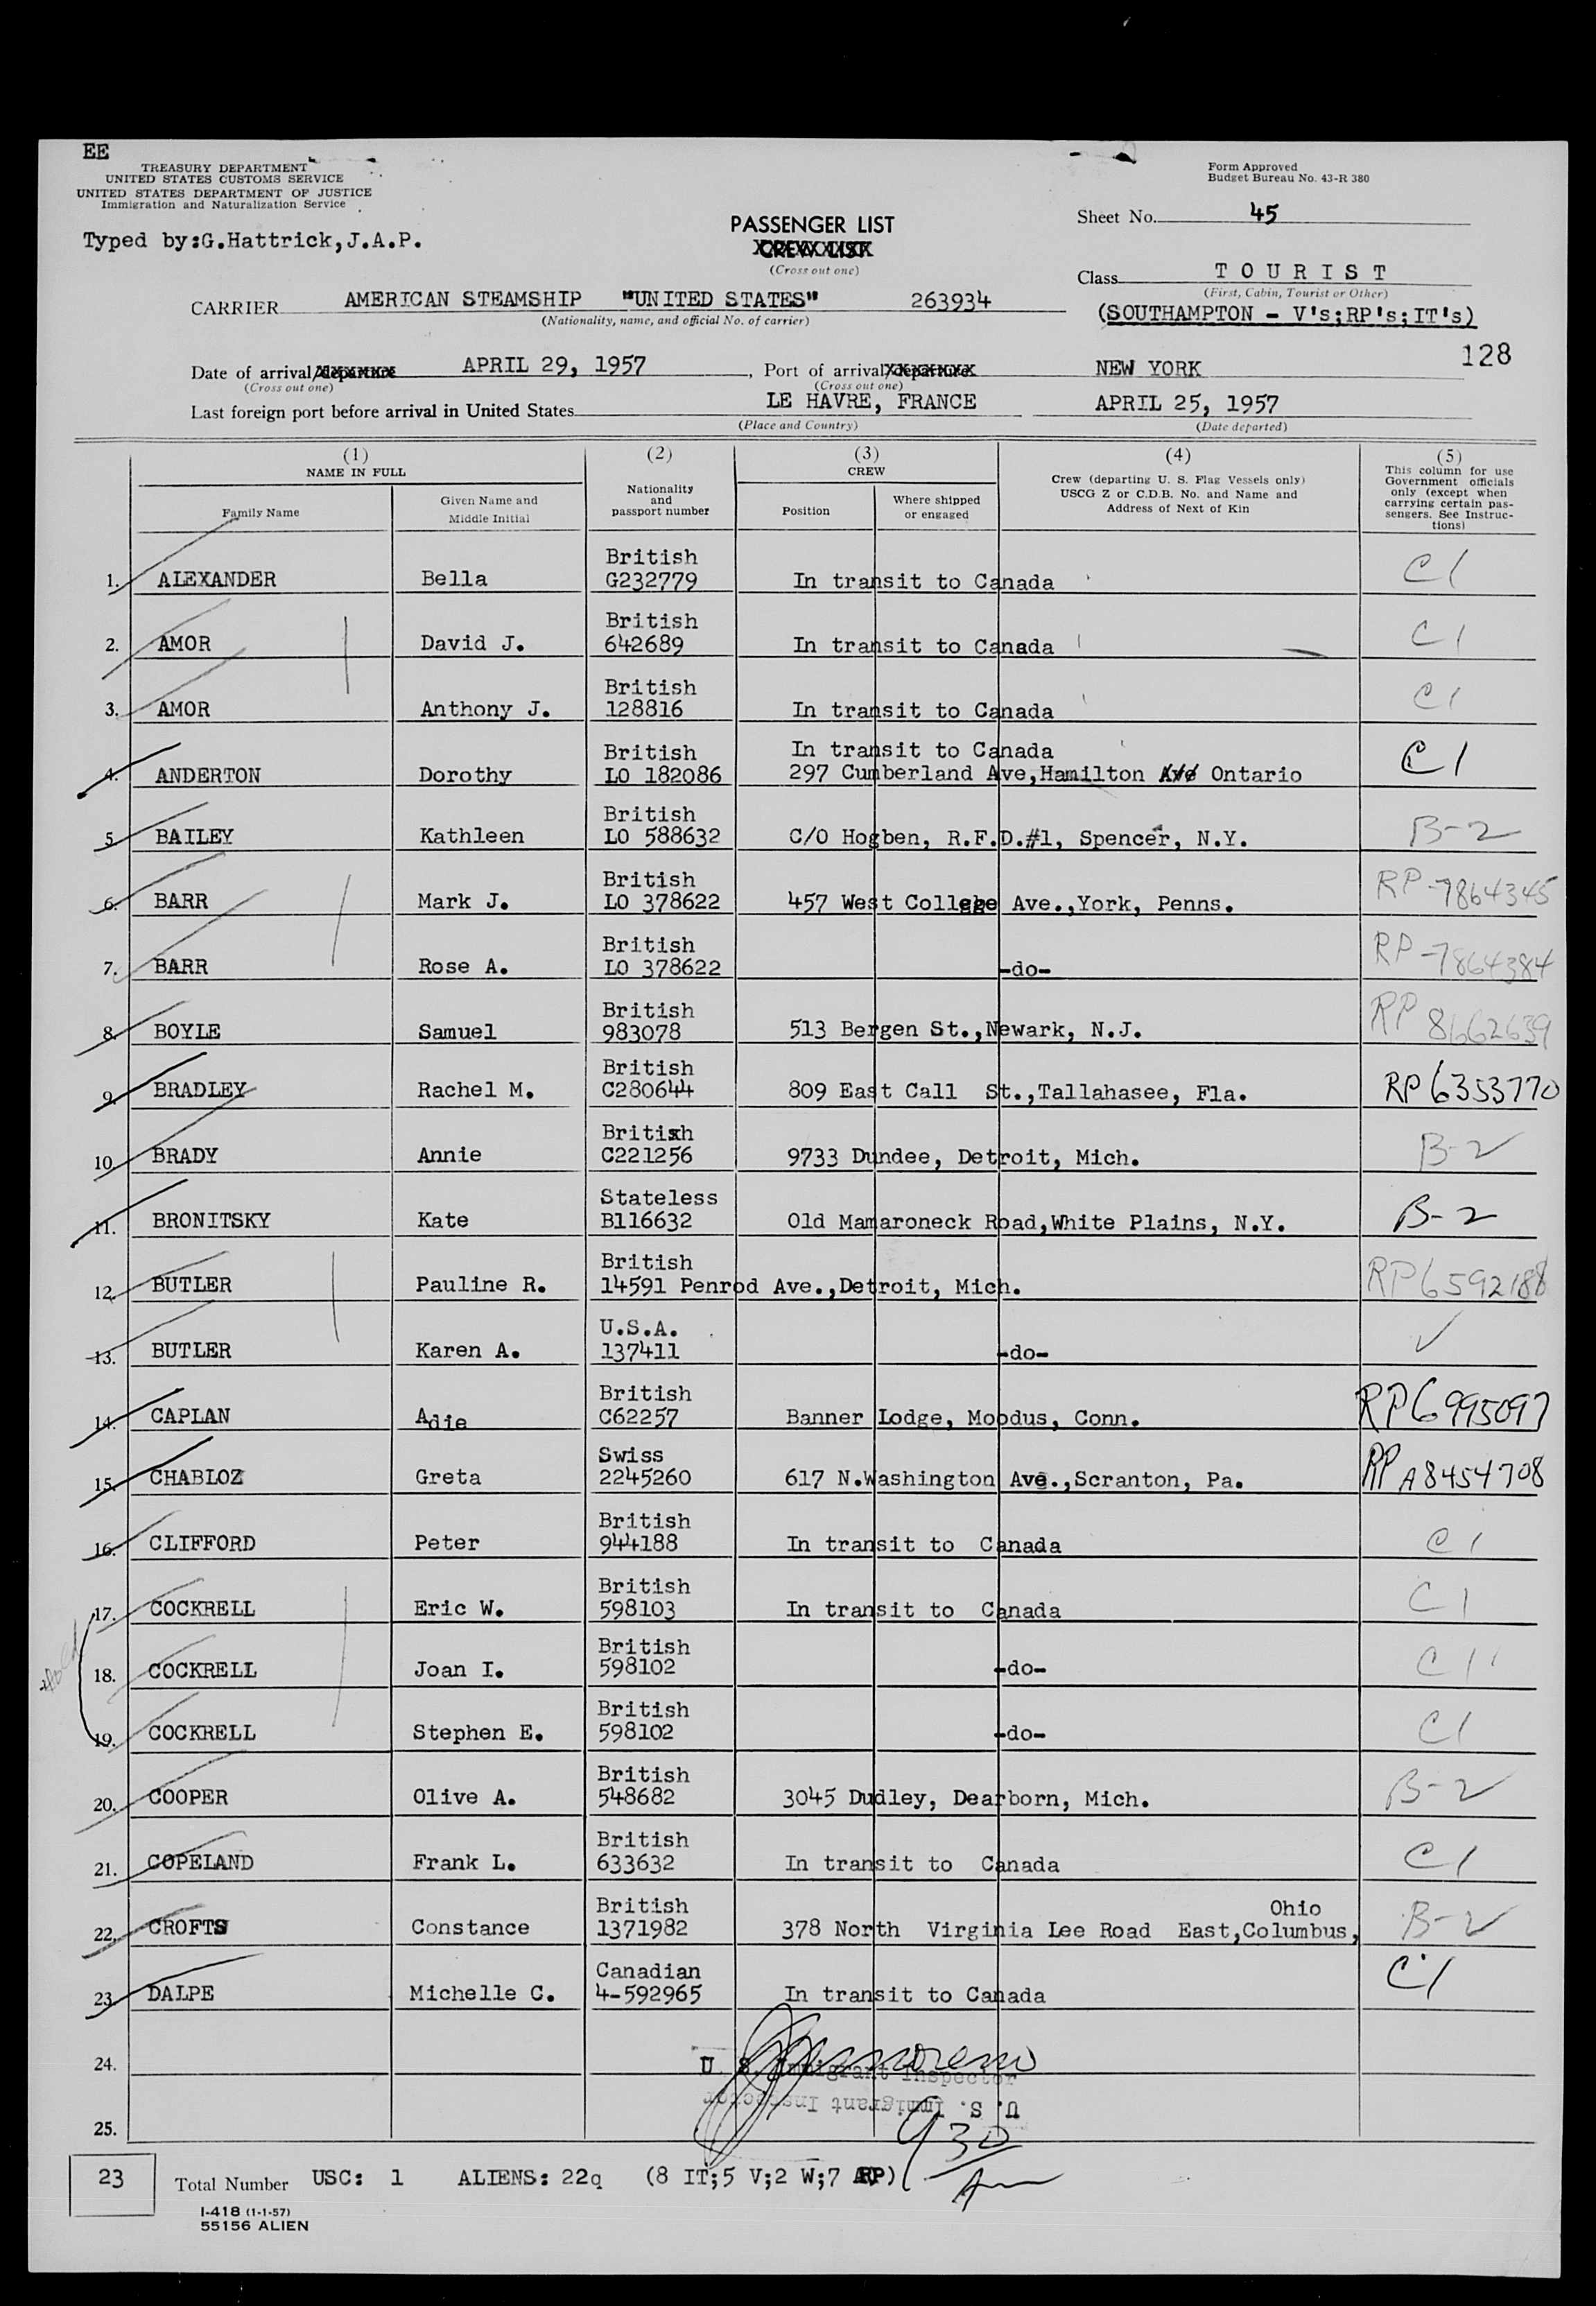 EE
TREASURY DEPARTMENT
UNITED STATES CUSTOMS SERVICE
UNITED STATES DEPARTMENT OF JUSTICE
Immigration and Naturalization Service
Form Approved
Budget Bureau No. 43-R 380
Typed by:G.Hattrick,J.A.P.
PASSENGER LIST
CREW LIST
(Cross out one)
Sheet No. 45
Class T O U R I S T
(First, Cabin, Tourist or Other)
(SOUTHAMPTON - V's;RP's;IT's)
CARRIER AMERICAN STEAMSHIP "UNITED STATES" 263934
(Nationality, name, and official No. of carrier)
128
Date of arrival/departure APRIL 29, 1957, Port of arrival/departure NEW YORK
(Cross out one) (Cross out one)
Last foreign port before arrival in United States LE HAVRE, FRANCE APRIL 25, 1957
(Place and Country) (Date departed)
(1) NAME IN FULL
Family Name
Given Name and Middle Initial
(2)
Nationality and passport number
(3) CREW
Position
Where shipped or engaged
(4)
Crew (departing U. S. Flag Vessels only) USCG Z or C.D.B. No. and Name and Address of Next of Kin
(5)
This column for use Government officials only (except when carrying certain passengers. See Instructions)
1. ALEXANDER Bella British G232779 In transit to Canada C1
2. AMOR David J. British 642689 In transit to Canada C1
3. AMOR Anthony J. British 128816 In transit to Canada C1
4. ANDERTON Dorothy British LO 182086 In transit to Canada 297 Cumberland Ave,Hamilton Ontario C1
5. BAILEY Kathleen British LO 588632 C/O Hogben, R.F.D.#1, Spencer, N.Y. B-2
6. BARR Mark J. British LO 378622 457 West College Ave.,York, Penns. RP-7864345
7. BARR Rose A. British LO 378622 -do- RP-7864384
8. BOYLE Samuel British 983078 513 Bergen St.,Newark, N.J. RP 8662639
9. BRADLEY Rachel M. British C280644 809 East Call St.,Tallahasee, Fla. RP6353770
10. BRADY Annie British C221256 9733 Dundee, Detroit, Mich. B-2
11. BRONITSKY Kate Stateless B116632 Old Mamaroneck Road,White Plains, N.Y. B-2
12. BUTLER Pauline R. British 14591 Penrod Ave.,Detroit, Mich. RP6592188
13. BUTLER Karen A. U.S.A. 137411 -do- ✓
14. CAPLAN Adie British C62257 Banner Lodge, Moodus, Conn. RP6995097
15. CHABLOZ Greta Swiss 2245260 617 N.Washington Ave.,Scranton, Pa. RP A8454708
16. CLIFFORD Peter British 944188 In transit to Canada C1
17. COCKRELL Eric W. British 598103 In transit to Canada C1
18. COCKRELL Joan I. British 598102 -do- C1
19. COCKRELL Stephen E. British 598102 -do- C1
20. COOPER Olive A. British 548682 3045 Dudley, Dearborn, Mich. B-2
21. COPELAND Frank L. British 633632 In transit to Canada C1
22. CROFTS Constance British 1371982 378 North Virginia Lee Road East,Columbus, Ohio B-2
23. DALPE Michelle C. Canadian 4-592965 In transit to Canada C1
24.
U. S. Immigrant Inspector
U. S. Immigrant Inspector
25.
930
Am
23 Total Number USC: 1 ALIENS: 22 (8 IT;5 V;2 W;7 RP)
I-418 (1-1-57)
55156 ALIEN